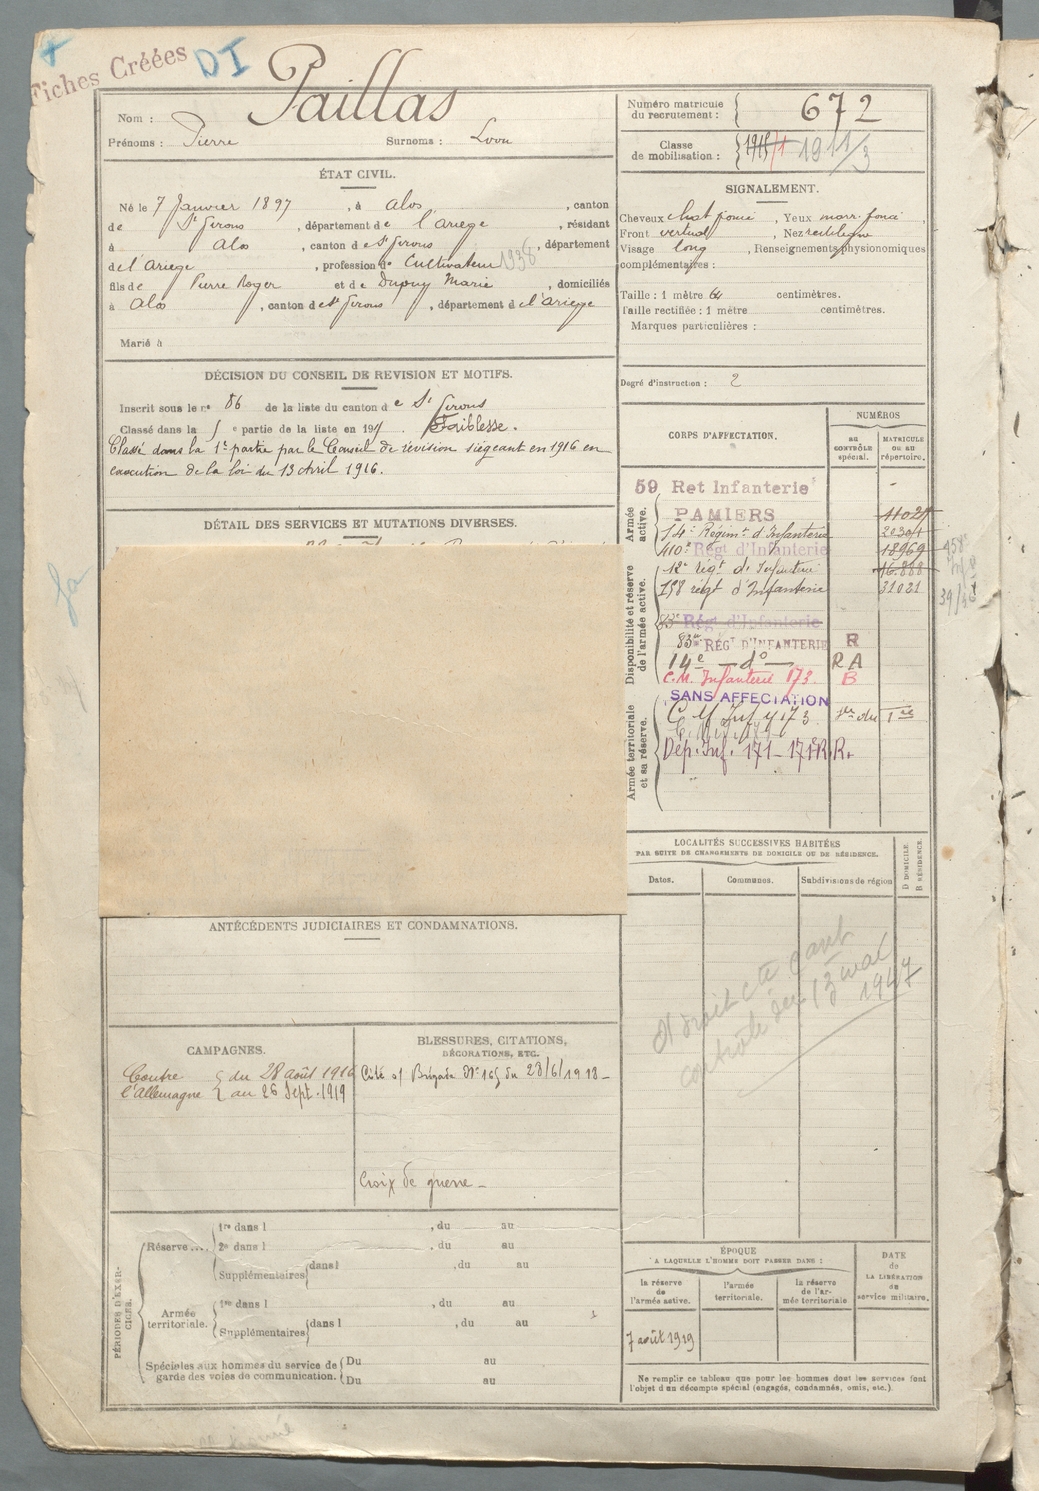 Fiches Créées
DI
Paillas
Nom :
Prénoms : Pierre Surnoms :
Numéro matricule du recrutement : 672
Classe de mobilisation : 1911/3
ÉTAT CIVIL.
Né le 7 Janvier 1897, à Alos, canton
de St Girons, département de l'Ariège, résidant
à Alos, canton de St Girons, département
de l'Ariège, profession de Cultivateur 1938
fils de Pierre Roger et de Dupuy Marie, domiciliés
à Alos, canton de St Girons, département de l'Ariège
Marié à
SIGNALEMENT.
Cheveux chat foncé, Yeux marr. foncé,
Front vertical, Nez rectiligne
Visage long, Renseignements physionomiques
complémentaires :
Taille : 1 mètre 64 centimètres.
Taille rectifiée : 1 mètre centimètres.
Marques particulières :
Degré d'instruction : 2
DÉCISION DU CONSEIL DE REVISION ET MOTIFS.
Inscrit sous le n° 86 de la liste du canton de St Girons
Classé dans la 5e partie de la liste en 191 . Faiblesse.
Classé dans la 1e partie par le Conseil de révision siégeant en 1916 en
exécution de la loi du 13 Avril 1916.
DÉTAIL DES SERVICES ET MUTATIONS DIVERSES.
CORPS D'AFFECTATION.
NUMÉROS
au contrôle spécial.
MATRICULE OU AU répertoire.
Armée active.
59 Ret Infanterie
PAMIERS 11021
14e Régimt d'Infanterie
410e Régt d'Infanterie 18969
Disponibilité et réserve de l'armée active.
12e régt d'Infanterie 16.888
158 régt d'Infanterie 31021
83e Régt d'Infanterie
83e RÉGT D'INFANTERIE R
14e — do — RA
C.M. Infanterie 173. B
SANS AFFECTATION
Armée territoriale et sa réserve.
Dép. Inf. 171 - 171 R.R.
LOCALITÉS SUCCESSIVES HABITÉES
PAR SUITE DE CHANGEMENTS DE DOMICILE OU DE RÉSIDENCE.
Dates.
Communes.
Subdivisions de région
D DOMICILE.
R RÉSIDENCE.
contrôle du 13 mai
1947
ANTÉCÉDENTS JUDICIAIRES ET CONDAMNATIONS.
CAMPAGNES.
Contre du 28 août 1916
l'Allemagne au 26 Sept. 1919
BLESSURES, CITATIONS,
DÉCORATIONS, ETC.
Cité o/ Brigade N° 165 du 28/6/1918 -
Croix de guerre -
PÉRIODES D'EXERCICES.
Réserve....
1re dans l , du au
2e dans l , du au
Supplémentaires dans l , du au
Armée territoriale.
1re dans l , du au
Supplémentaires dans l , du au
Spéciales aux hommes du service de garde des voies de communication.
Du au
Du au
ÉPOQUE
A LAQUELLE L'HOMME DOIT PASSER DANS :
la réserve de l'armée active.
l'armée territoriale.
la réserve de l'armée territoriale
DATE
de
LA LIBÉRATION
du
service militaire.
7 août 1919
Ne remplir ce tableau que pour les hommes dont les services font
l'objet d'un décompte spécial (engagés, condamnés, omis, etc.).